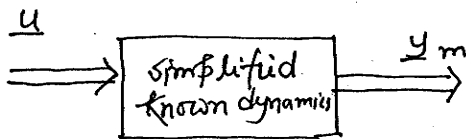 u
y m
simplified
known dynamics